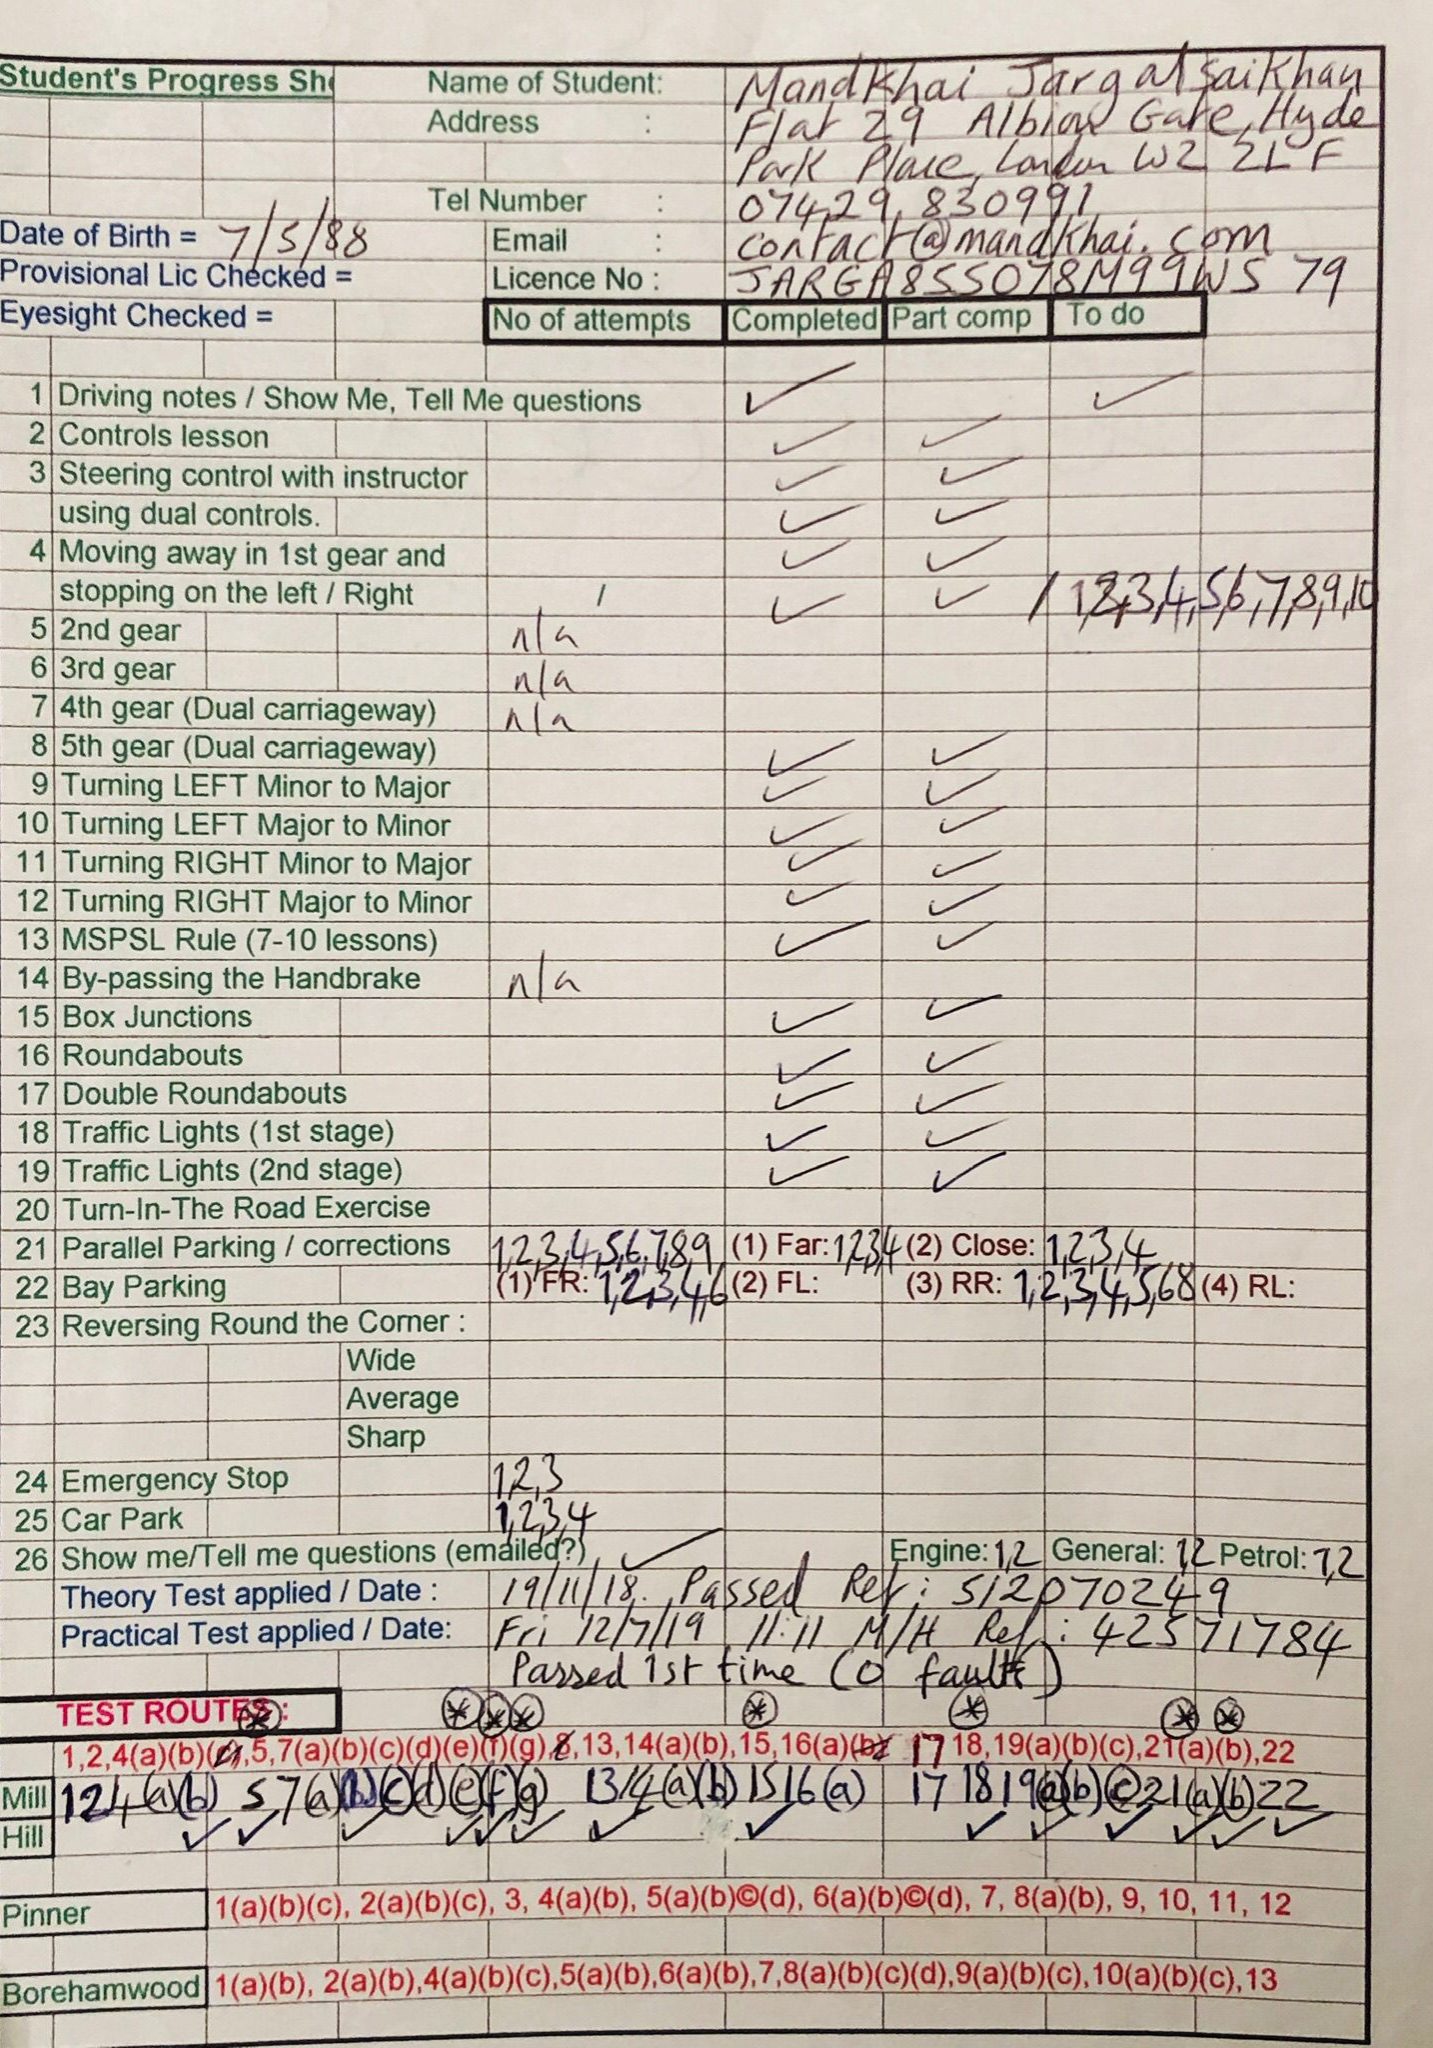 Student's Progress She Name of Student: Mandkhai Jargalsaikhan
Address : Flat 29 Albion Gate, Hyde
Park Place, London W2 2LF
Tel Number : 07429 830991
Date of Birth = 7/5/88 Email : contact@mandkhai.com
Provisional Lic Checked = Licence No : JARGA855078M99WS 79
Eyesight Checked = No of attempts Completed Part comp To do
1 Driving notes / Show Me, Tell Me questions ✓ ✓
2 Controls lesson ✓ ✓
3 Steering control with instructor ✓ ✓
using dual controls. ✓ ✓
4 Moving away in 1st gear and ✓ ✓
stopping on the left / Right / ✓ ✓ / 1,2,3,4,5,6,7,8,9,10
5 2nd gear n/a
6 3rd gear n/a
7 4th gear (Dual carriageway) n/a
8 5th gear (Dual carriageway) ✓ ✓
9 Turning LEFT Minor to Major ✓ ✓
10 Turning LEFT Major to Minor ✓ ✓
11 Turning RIGHT Minor to Major ✓ ✓
12 Turning RIGHT Major to Minor ✓ ✓
13 MSPSL Rule (7-10 lessons) ✓ ✓
14 By-passing the Handbrake n/a
15 Box Junctions ✓ ✓
16 Roundabouts ✓ ✓
17 Double Roundabouts ✓ ✓
18 Traffic Lights (1st stage) ✓ ✓
19 Traffic Lights (2nd stage) ✓ ✓
20 Turn-In-The Road Exercise
21 Parallel Parking / corrections 1,2,3,4,5,6,7,8,9 (1) Far: 1,2,3,4 (2) Close: 1,2,3,4
22 Bay Parking (1) FR: 1,2,3,4,6 (2) FL: (3) RR: 1,2,3,4,5,6,8 (4) RL:
23 Reversing Round the Corner :
Wide
Average
Sharp
24 Emergency Stop 1,2,3
25 Car Park 1,2,3,4
26 Show me/Tell me questions (emailed?) ✓ Engine: 1,2 General: 1,2 Petrol: 1,2
Theory Test applied / Date : 19/11/18. Passed Ref: 512070249
Practical Test applied / Date: Fri 12/7/19 11:11 M/H Ref: 42571784
Passed 1st time (0 faults)
TEST ROUTES :
1,2,4(a)(b),5,7(a)(b)(c)(d)(e)(f)(g),13,14(a)(b),15,16(a) 17 18,19(a)(b)(c),21(a)(b),22
Mill 1 2 4 (a)(b) 5 7(a)(b)(c)(d)(e)(f)(g) 13 14(a)(b) 15 16(a) 17 18 19(a)(b)(c) 21(a)(b) 22
Hill ✓ ✓ ✓ ✓ ✓ ✓ ✓ ✓ ✓ ✓ ✓ ✓ ✓ ✓
Pinner 1(a)(b)(c), 2(a)(b)(c), 3, 4(a)(b), 5(a)(b)©(d), 6(a)(b)©(d), 7, 8(a)(b), 9, 10, 11, 12
Borehamwood 1(a)(b), 2(a)(b),4(a)(b)(c),5(a)(b),6(a)(b),7,8(a)(b)(c)(d),9(a)(b)(c),10(a)(b)(c),13